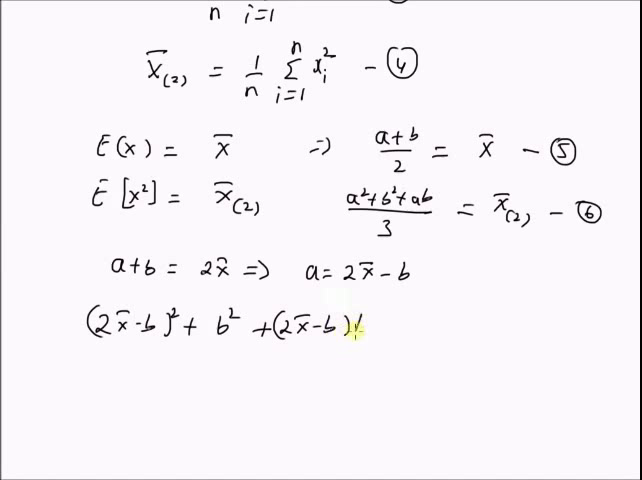 n i=1
x̄₍₂₎ = 1/n Σ_{i=1}^{n} x_i² - ④
E(x) = x̄ => (a+b)/2 = x̄ - ⑤
E[x²] = x̄₍₂₎ (a²+b²+ab)/3 = x̄₍₂₎ - ⑥
a+b = 2x̄ => a = 2x̄ - b
(2x̄-b)² + b² + (2x̄-b)